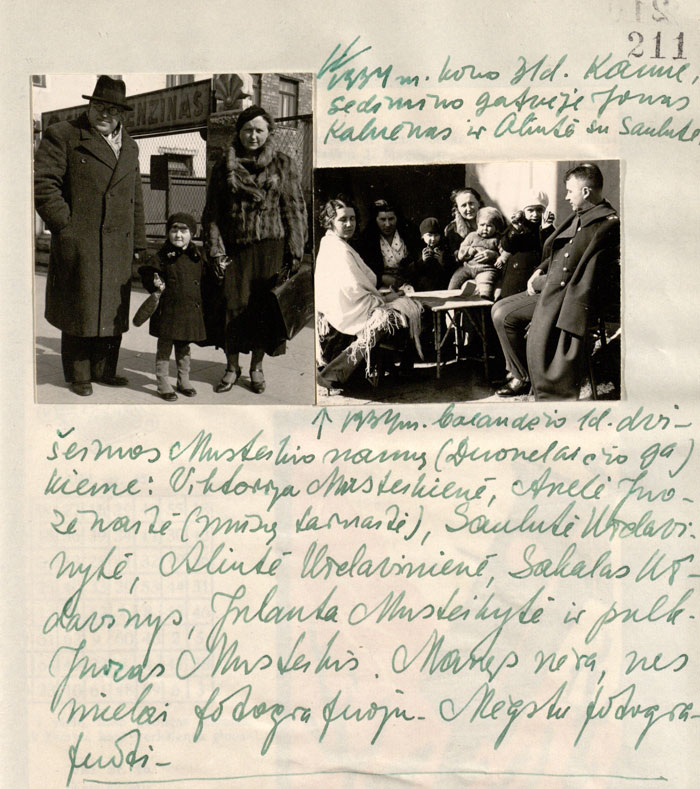 211
1934 m. kovo 31d. Kaune
Gedimino gatvėje Jonas
Kalnėnas ir Alintė su Saulute.
ENZINAS
↑ 1934 m. balandžio 1d. dvi-
šeimos Musteikio namų (Duonelaičio ga)
kieme: Viktorija Musteikienė, Anelė Juo-
zėnaitė (mūsų tarnaitė), Saulutė Urdavi-
nytė, Alintė Urdavinienė, Sakalas Ur-
davinys, Jolanta Musteikytė ir pulk.
Juozas Musteikis. Manęs nėra, nes
mielai fotografuoju – Mėgstu fotogra-
fuoti –